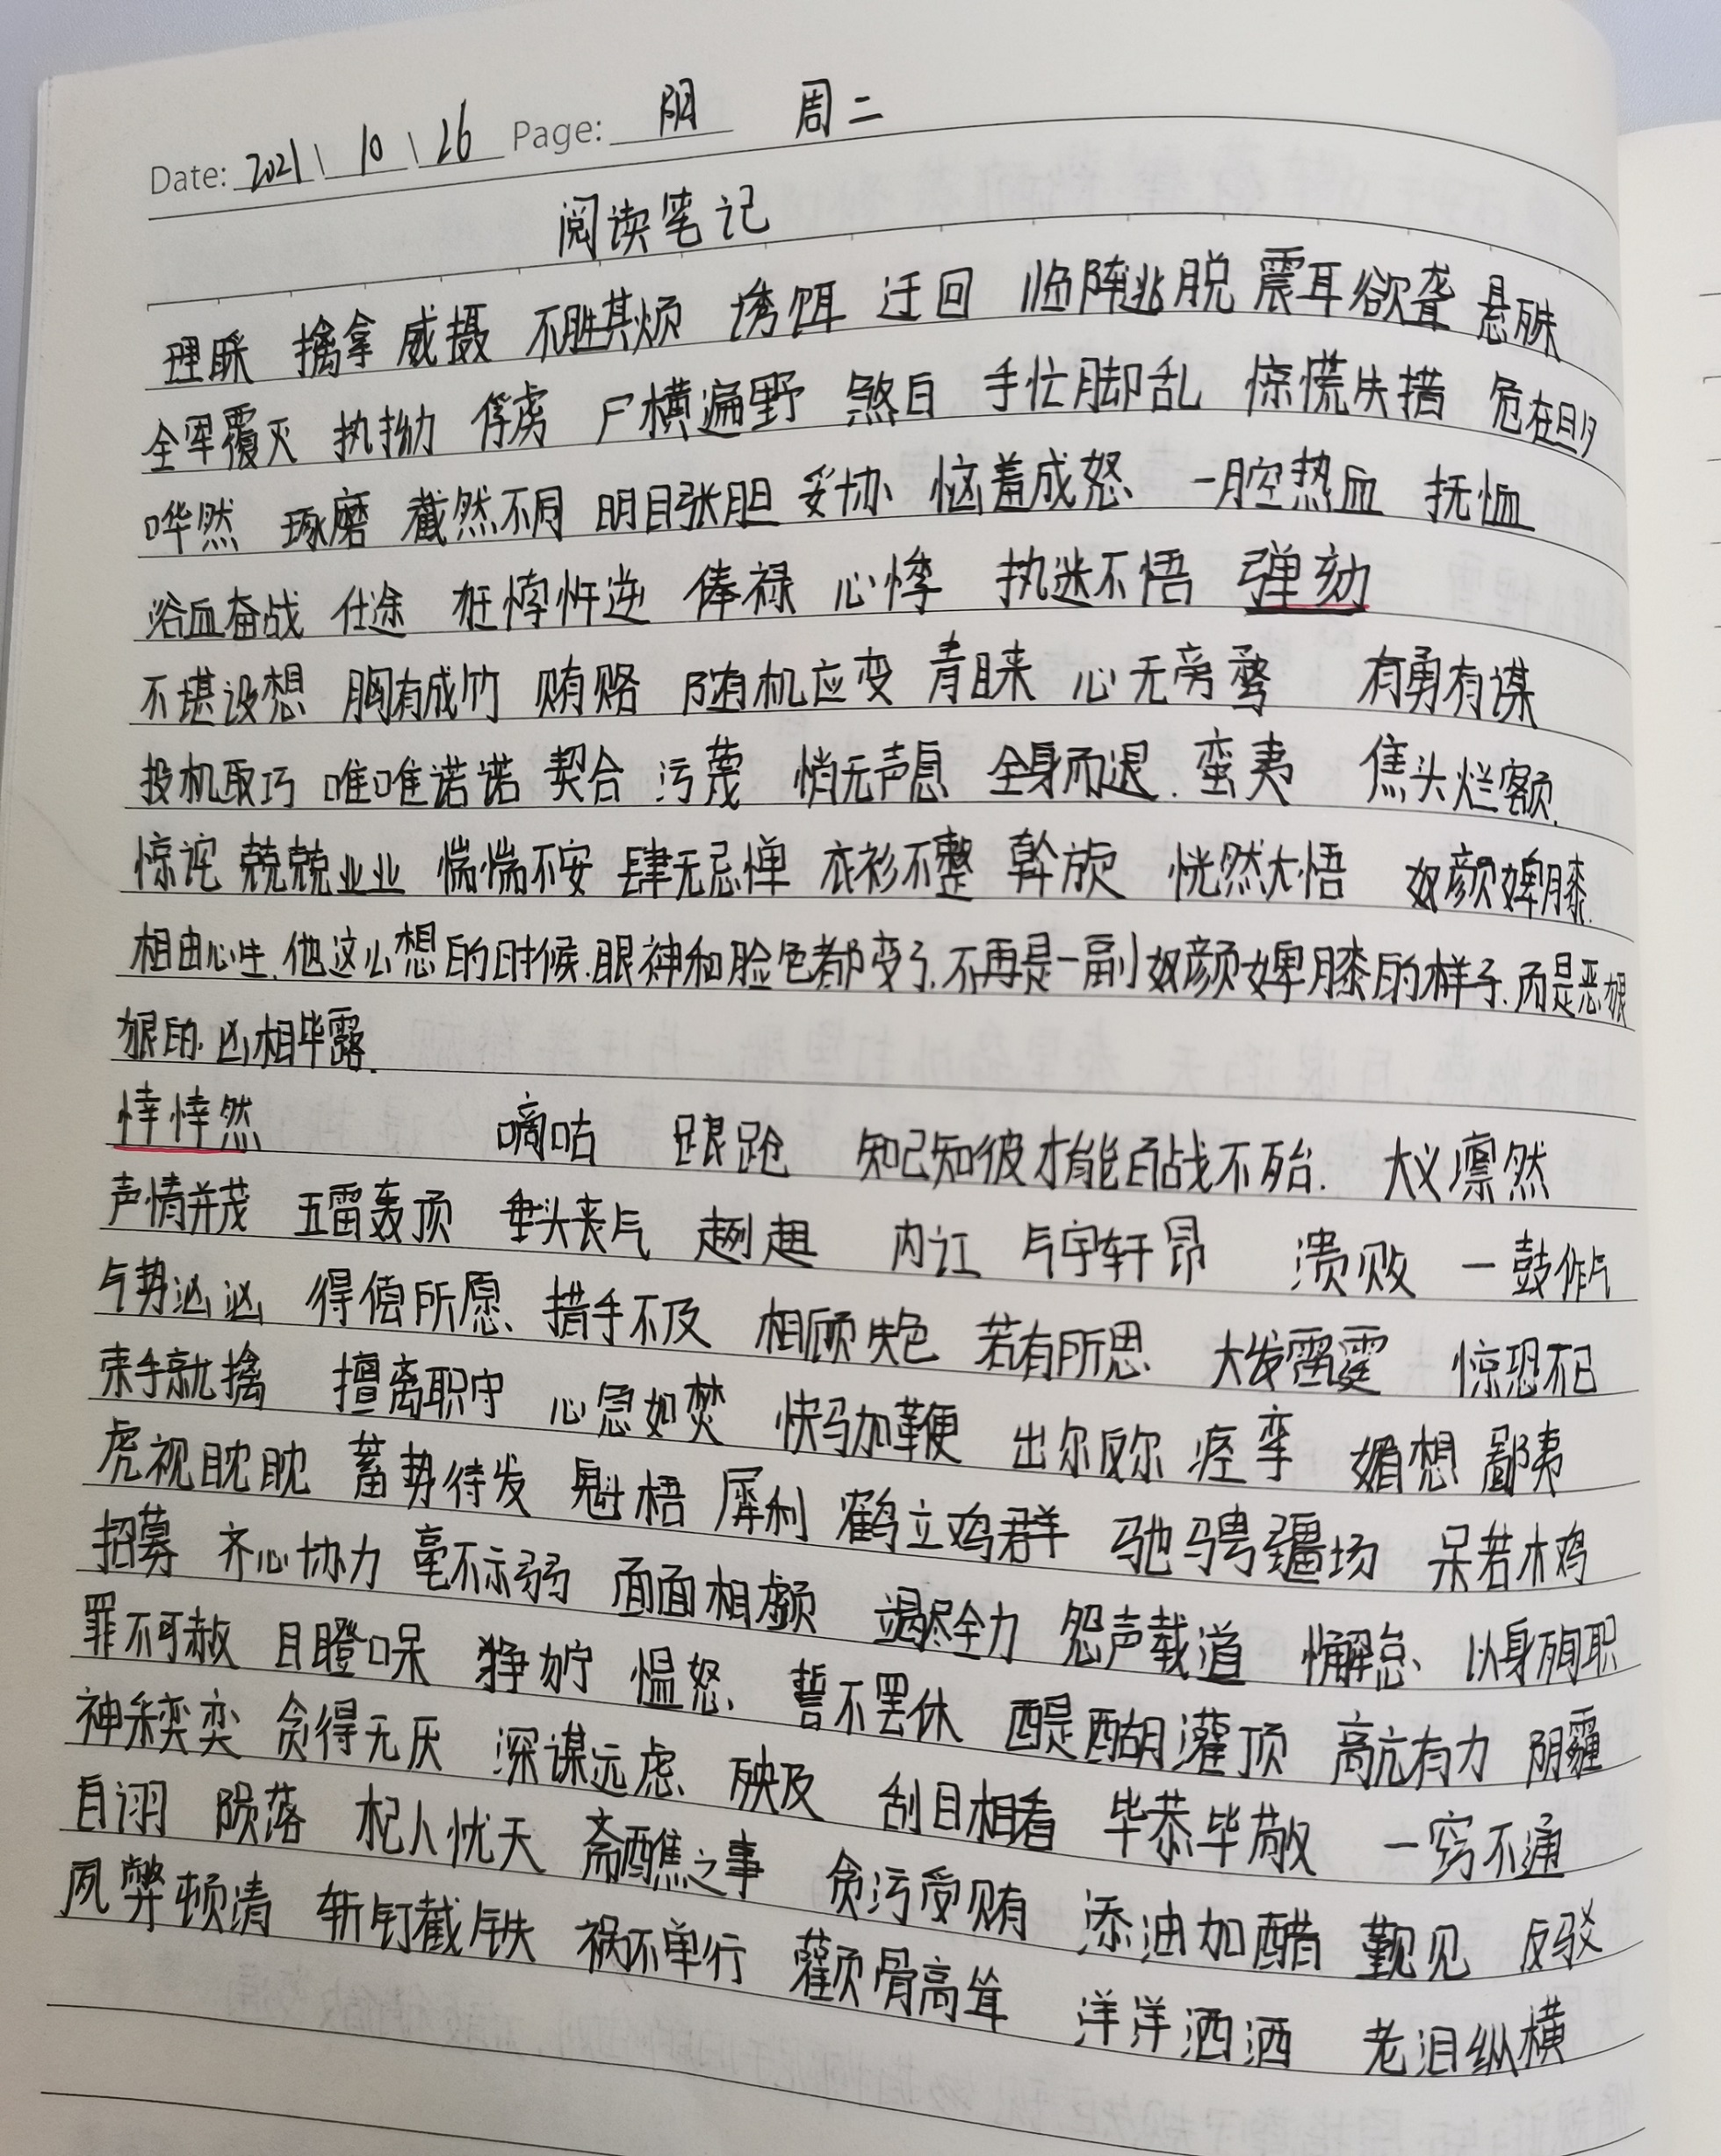 Date: 2021\ 10 \ 26 Page: 阴 周二
阅读笔记
理睬 擒拿 威摄 不胜其烦 诱饵 迂回 临阵逃脱 震耳欲聋 悬殊
全军覆灭 执拗 俘虏 尸横遍野 煞白 手忙脚乱 惊慌失措 危在旦夕
哗然 琢磨 截然不同 明目张胆 妥协 恼羞成怒 一腔热血 抚恤
浴血奋战 仕途 狂悖忤逆 俸禄 心悸 执迷不悟 弹劾
不堪设想 胸有成竹 贿赂 随机应变 青睐 心无旁骛 有勇有谋
投机取巧 唯唯诺诺 契合 污蔑 悄无声息 全身而退. 蛮夷 焦头烂额.
惊诧 兢兢业业 惴惴不安 肆无忌惮 衣衫不整 斡旋 恍然大悟 奴颜婢膝.
相由心生.他这么想的时候.眼神和脸色都变了.不再是一副奴颜婢膝的样子.而是恶狠
狠的.凶相毕露.
悻悻然 嘀咕 踉跄 知己知彼才能百战不殆. 大义凛然
声情并茂 五雷轰顶 垂头丧气 趔趄 内讧 气宇轩昂 溃败 一鼓作气
气势汹汹 得偿所愿 措手不及 相顾失色 若有所思 大发雷霆 惊恐不已
束手就擒 擅离职守 心急如焚 快马加鞭 出尔反尔 痉挛 媚想 鄙夷
虎视眈眈 蓄势待发 魁梧 犀利 鹤立鸡群 驰骋疆场 呆若木鸡
招募 齐心协力 毫不示弱 面面相觑 竭尽全力 怨声载道 懈怠 以身殉职
罪不可赦 目瞪口呆 狰狞 愠怒 誓不罢休 醍醐灌顶 高亢有力 阴霾
神采奕奕 贪得无厌 深谋远虑 殃及 刮目相看 毕恭毕敬 一窍不通
自诩 陨落 杞人忧天 斋醮之事 贪污受贿 添油加醋 觐见 反驳
夙弊顿清 斩钉截铁 祸不单行 颧骨高耸 洋洋洒洒 老泪纵横